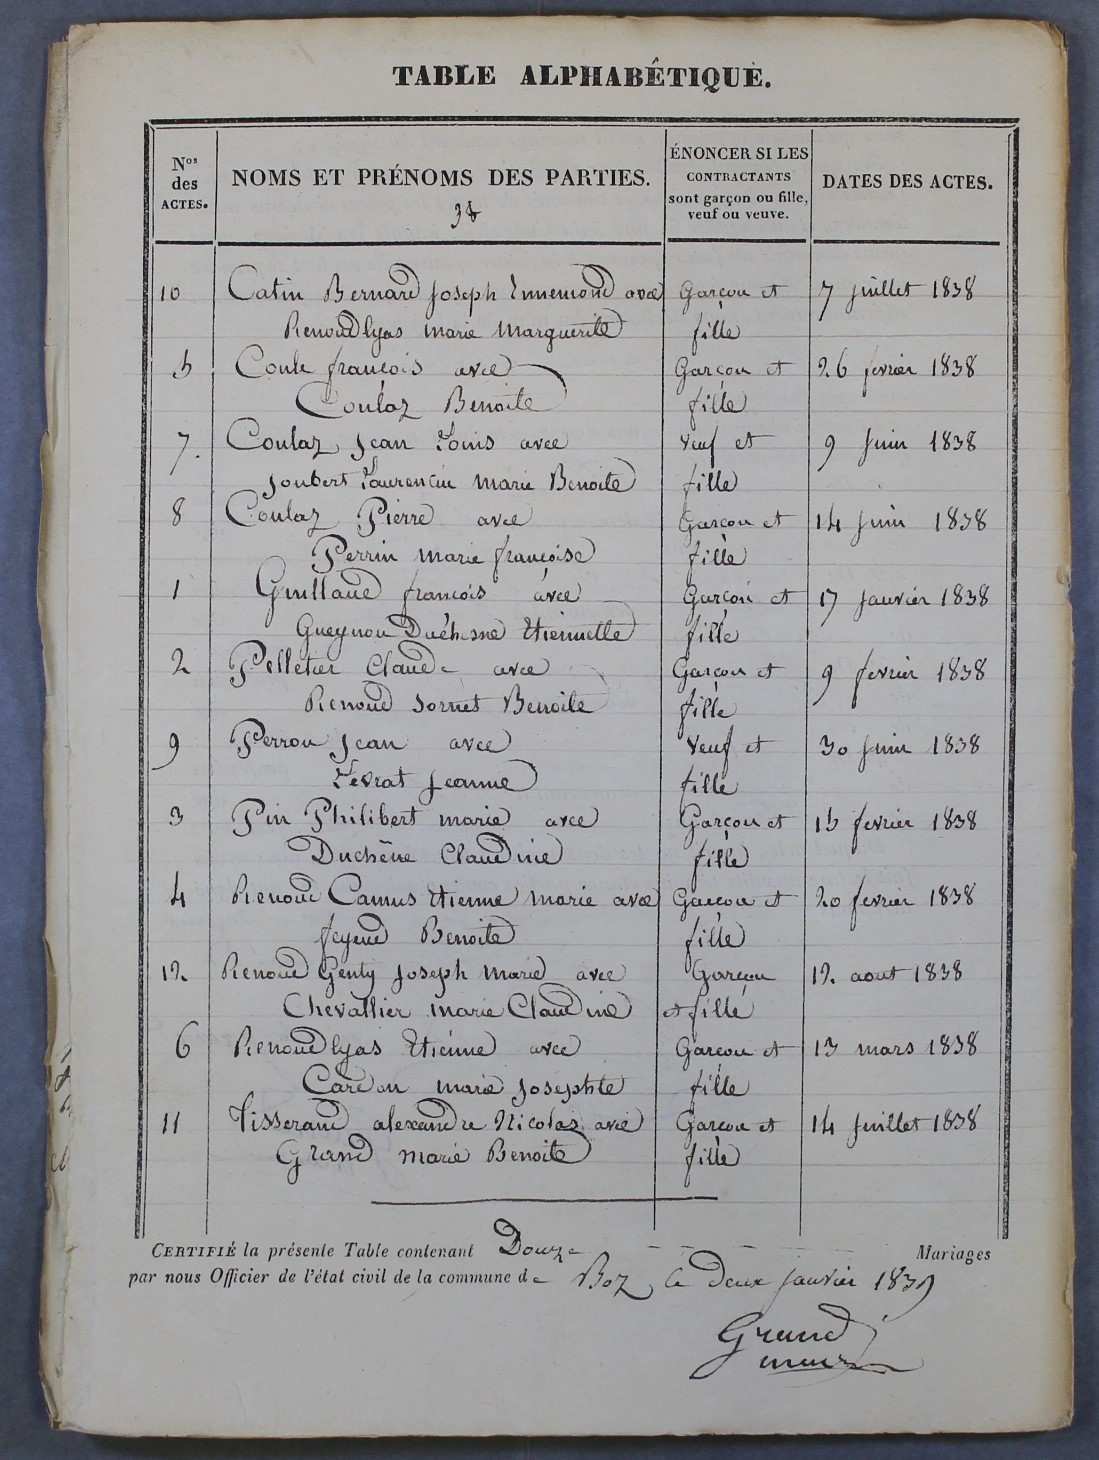 TABLE ALPHABÉTIQUE.
Nos des ACTES.
NOMS ET PRÉNOMS DES PARTIES.
38
ÉNONCER SI LES
CONTRACTANTS
sont garçon ou fille,
veuf ou veuve.
DATES DES ACTES.
10 Catin Bernard Joseph Ennemond avec Garçon et 7 juillet 1838
Renoud lyas marie marguerite fille
5 Conte françois avec Garçon et 26 fevrier 1838
Coulaz Benoite fille
7. Coulaz Jean Louis avec Veuf et 9 Juin 1838
Joubert Laurencin marie Benoite fille
8 Coulaz Pierre avec Garçon et 14 Juin 1838
Perrin marie françoise fille
1 Guillaud françois avec Garçon et 17 Janvier 1838
Gueynon Duchesne Etiennette fille
2 Pelletier Claude avec Garçon et 9 fevrier 1838
Renoud Sornet Benoite fille
9 Perron Jean avec Veuf et 30 Juin 1838
Levrat Jeanne fille
3 Pin Philibert marie avec Garçon et 15 fevrier 1838
Duchêne Claudine fille
4 Renoud Camus Etienne marie avec Garçon et 20 fevrier 1838
feyeud Benoite fille
12. Renoud Genty Joseph Marie avec Garçon 12. aout 1838
Chevallier marie Claudine et fille
6 Renoud lyas Etienne avec Garçon et 13 mars 1838
Cardon marie Josephte fille
11 Tisserand alexandre Nicolas avec Garçon et 14 Juillet 1838
Grand marie Benoite fille
CERTIFIÉ la présente Table contenant Douze Mariages
par nous Officier de l'état civil de la commune de Boz, le deux janvier 1839
Grand
maire